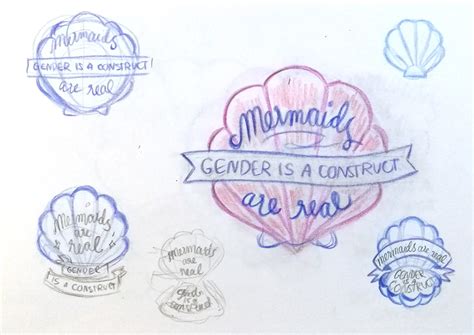 Mermaids
GENDER IS A CONSTRUCT
are real
Mermaids
GENDER IS A CONSTRUCT
are real
Mermaids
are
real
GENDER
IS A CONSTRUCT
Mermaids
are
real
mermaids are real
GENDER
IS A
CONSTRUCT